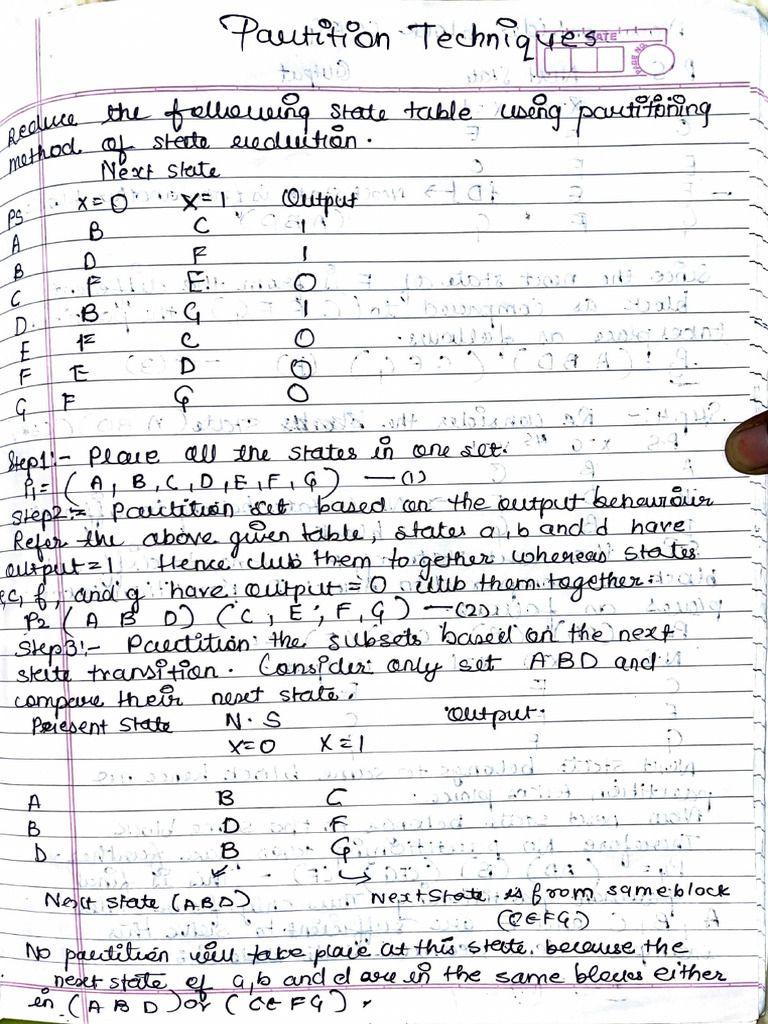 Partition Techniques
DATE
PAGE NO.
Reduce the following state table using partitioning
method of state reduction.
Next state
PS X=0 X=1 Output
A B C 1
B D F 1
C F E 0
D. B G 1
E F C 0
F E D 0
G F G 0
Step1:- Place all the states in one set.
P1= (A, B, C, D, E, F, G) —(1)
Step2:- Partition set based on the output behaviour
Refer the above given table, states a, b and d have
output=1. Hence club them together whereas states
e, c, f, and g have output=0 club them together.
P2 (A B D) (C, E, F, G) —(2)
Step3:- Partition the subsets based on the next
state transition. Consider only set ABD and
compare their next state.
Present State N.S Output.
X=0 X=1
A B C
B D F
D. B G
Next state (ABD) Next State is from same block
(CEFG)
No partition will take place at this state because the
next state of a, b and d are in the same blocks either
in (A B D) or (CE FG).